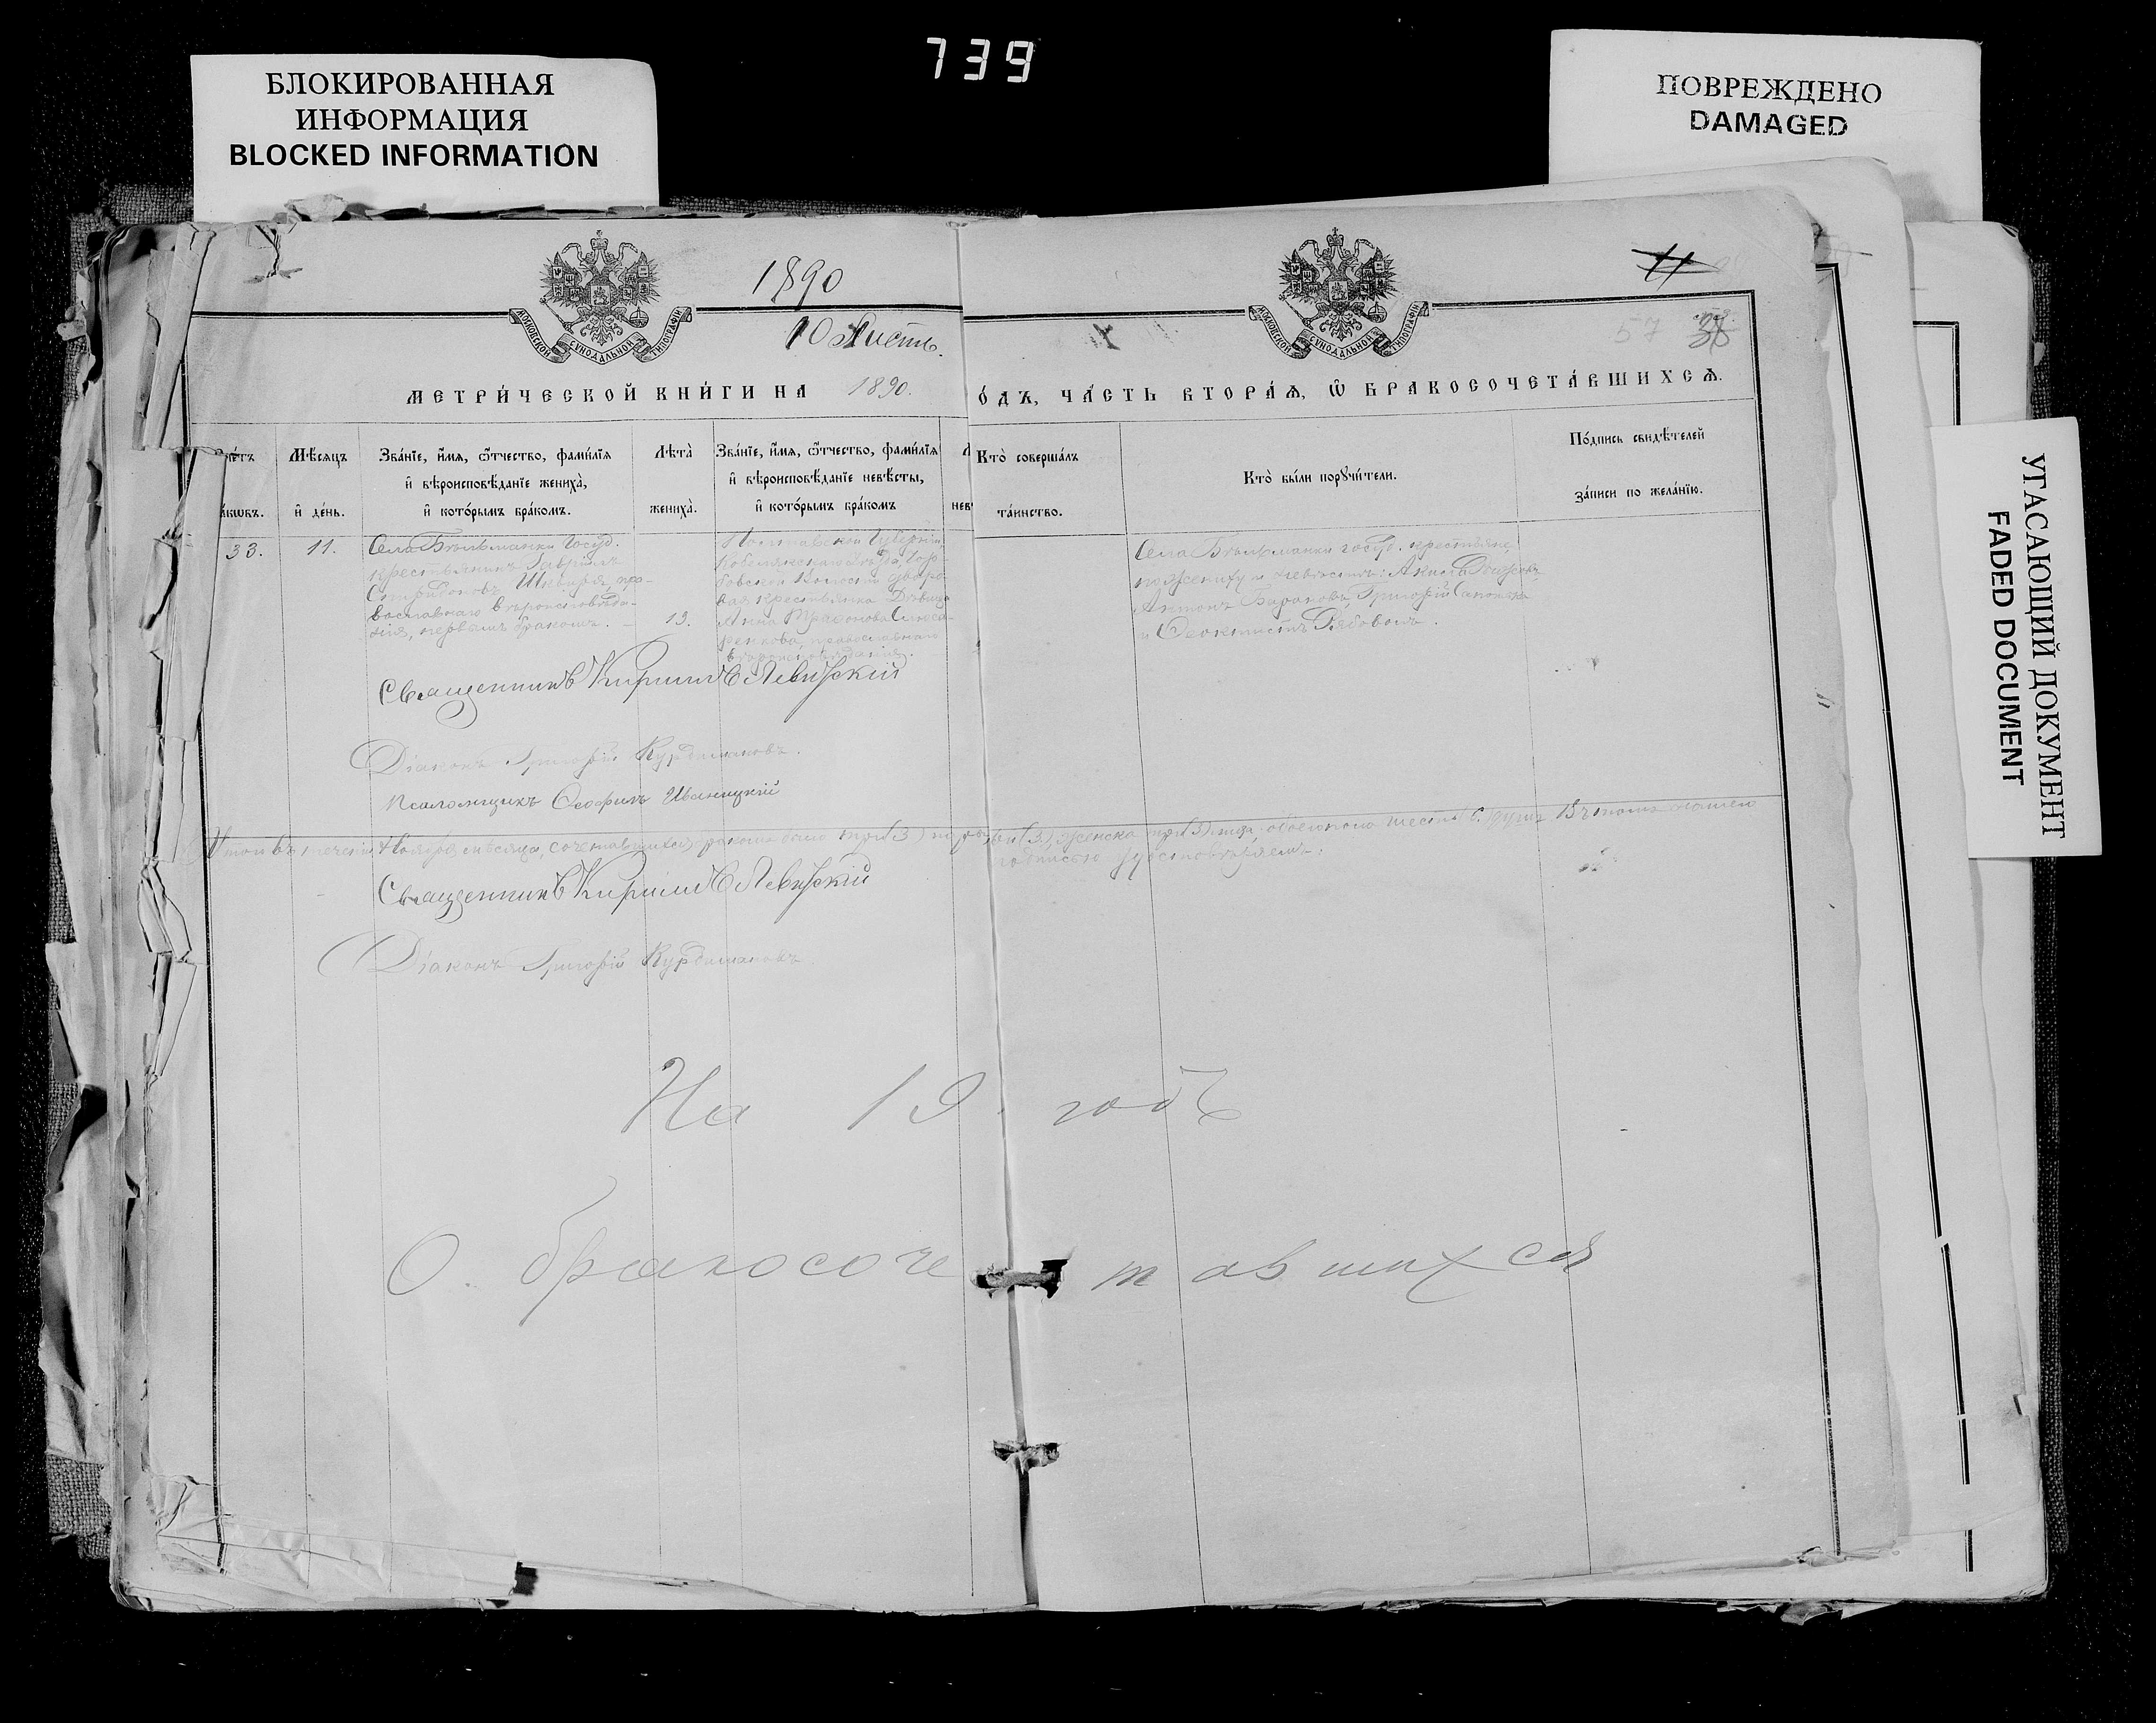 739
БЛОКИРОВАННАЯ
ИНФОРМАЦИЯ
BLOCKED INFORMATION
ПОВРЕЖДЕНО
DAMAGED
УГАСАЮЩИЙ ДОКУМЕНТ
FADED DOCUMENT
1890
11
МОСКОВСКОЙ СѴНОДАЛЬНОЙ ТИПОГРАФІИ
МОСКОВСКОЙ СѴНОДАЛЬНОЙ ТИПОГРАФІИ
10 Листъ.
57
38
МЕТРИ́ЧЕСКОЙ КНИ́ГИ НА 1890.
О́ДЪ, ЧА́СТЬ ВТОРА́Я, Ѡ҆ БРАКОСОЧЕТА́ВШИХСЯ.
Мѣ́сяцъ
и҆ де́нь.
Зва́нїе, и҆́мя, ѻ҆́тчество, фами́лїѧ
и҆ вѣроисповѣ́данїе жениха̀,
и҆ кото́рымъ бра́комъ.
Лѣта̀
жениха̀.
Зва́нїе, и҆́мя, ѻ҆́тчество, фами́лїѧ
и҆ вѣроисповѣ́данїе невѣ́сты,
и҆ кото́рымъ бра́комъ
Кто̀ соверша́лъ
та́инство.
Кто̀ бы́ли порꙋчи́тели.
По́дпись свидѣ́телей
за́писи по жела́нїю.
33.
11.
Села Бѣльманки Госуд.
крестьянинъ Гавріилъ
Спиридоновъ Шкваря, пра-
вославнаго вѣроисповѣда-
нія, первымъ бракомъ.
19.
Полтавской Губерніи
Кобелякскаго уѣзда,
волости
крестьянка Дѣвица
Анна Трифонова
православнаго
вѣроисповѣданія.
Села Бѣльманки госуд. крестьяне,
по жениху и невѣстѣ: Акила
Антонъ Барановъ, Григорій
и Ѳеоктистъ Рябоволъ.
Священникъ Кириллъ Левитскій
Діаконъ Григорій Курдимановъ.
Псаломщикъ Ѳеофилъ Иваницкій
Итого въ теченіи Ноября мѣсяца, сочетавшихся бракомъ было три (3) женска три (3) лица, обоего пола шесть (6) душъ. Въ томъ
подписью удостовѣряемъ:
Священникъ Кириллъ Левитскій
Діаконъ Григорій Курдимановъ
На 19 годъ
О бракосочетавшихся